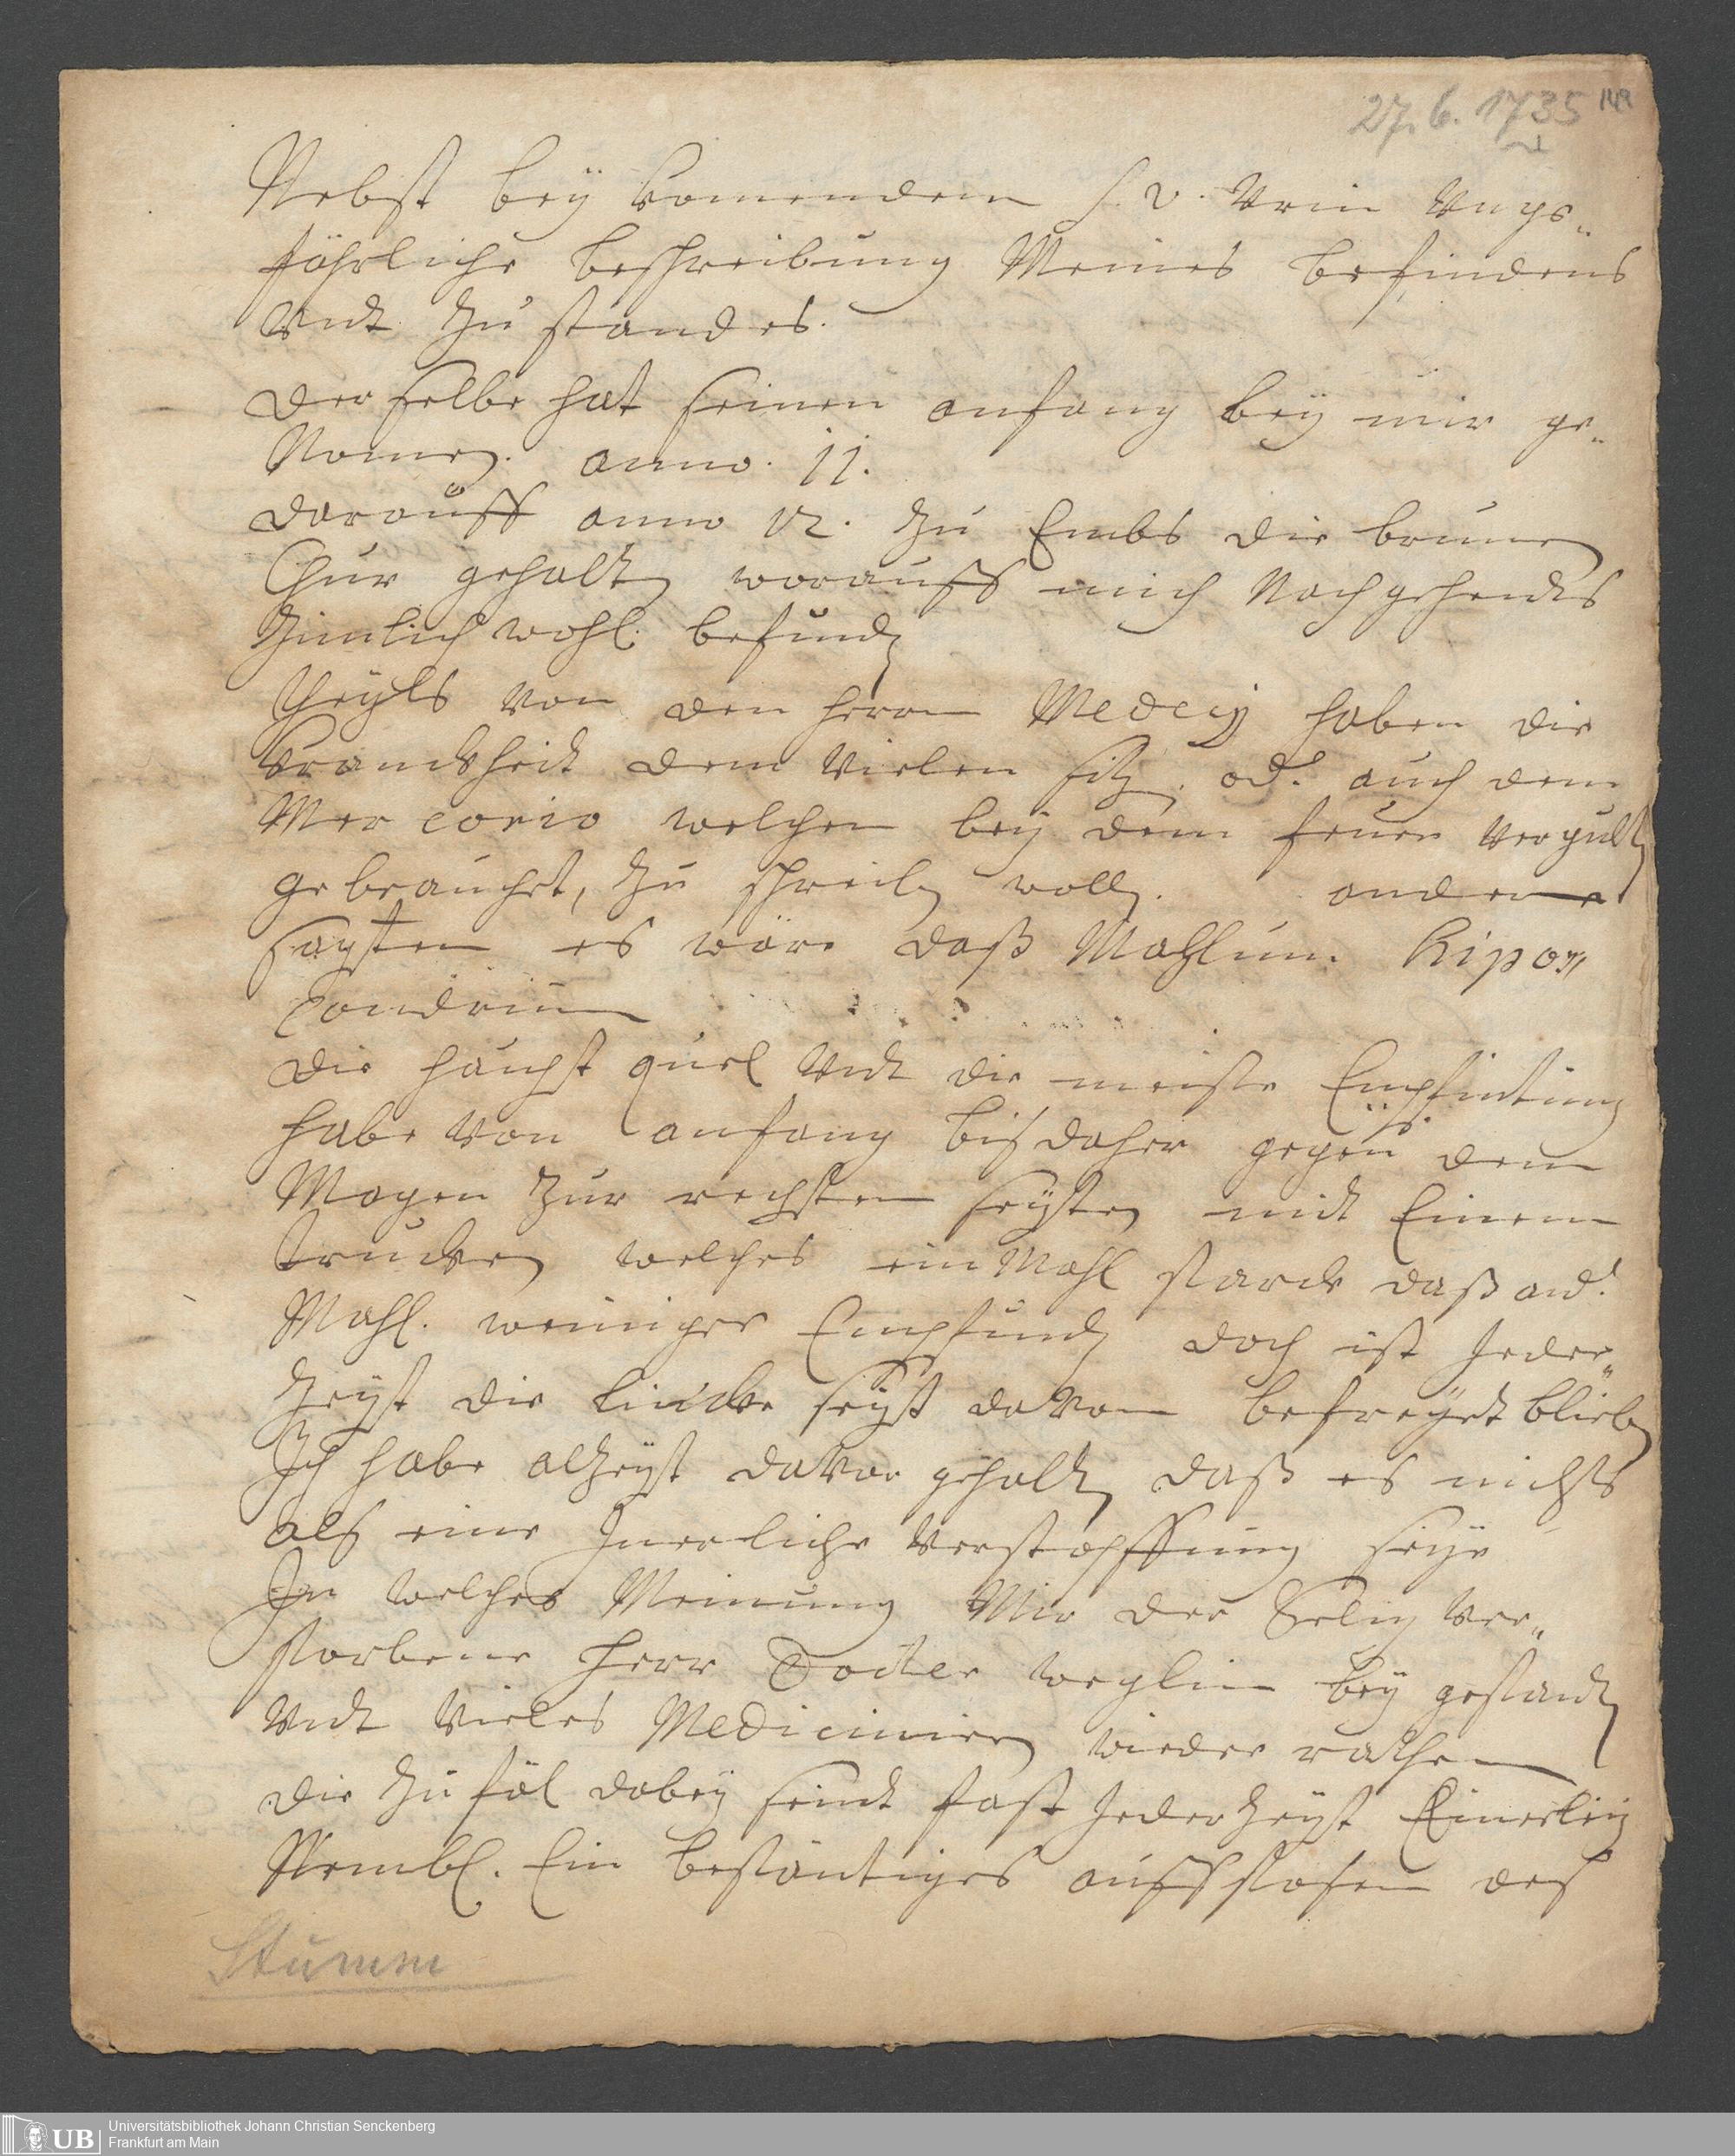 27. 6. 1735
149
Nebst beÿ komendem s. v. Vrin Vnge„
föhrliche beschreibung Meines befindens
Vndt Zu standes.
der selbe hat seinen anfang beÿ mir ge„
Nomen. anno. 11.
darauff anno 12. Zu Embs die brunen
Chur gehalten worauff mich Nach gehendts
Zimlich wohl befunden
theÿls von den herrn Medecij haben die
kranckheit dem Vielen sitzen. od. auch dem
Mercorio welchen beÿ dem feuer Vergulten
gebraucht, Zu schreiben wollen. andere
sagten es wäre daß Mahlum. Hipon
Condrium
die haubst quel Vndt die meiste Empfintung
habe Von anfang bis daher gegen dem
Magen Zur rechten seÿten midt Einem
trucken welches ein Mahl starck daß and.
Mahl. weniger Empfunden doch ist Jeder„
Zeÿt die lincke seÿt davon befreÿet blieben
Ich habe alZeÿt davor gehalten daß es nichts
als eine Inerliche Verstopffung seÿe
In welcher Meinung Mir der Selig Ver„
storbene Herr Docter weglin beÿ gestanden
Vndt Vieles Mediciniren wieder rathen
die Zu föl dabeÿ seindt fast JederZeÿt Einerleÿ
Nembl. Ein bestäntiges auffstosen des
Stumm
UB
Universitätsbibliothek Johann Christian Senckenberg
Frankfurt am Main